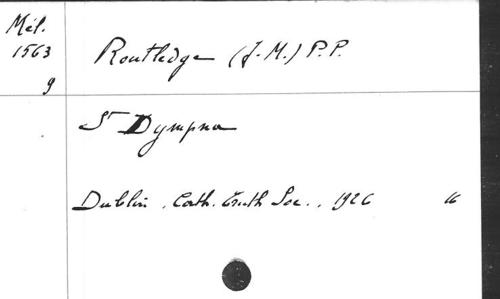 Mél.
1563
9
Routledge (J.-M.) P.P.
St Dympna
Dublin, Cath. Truth Soc., 1926 16